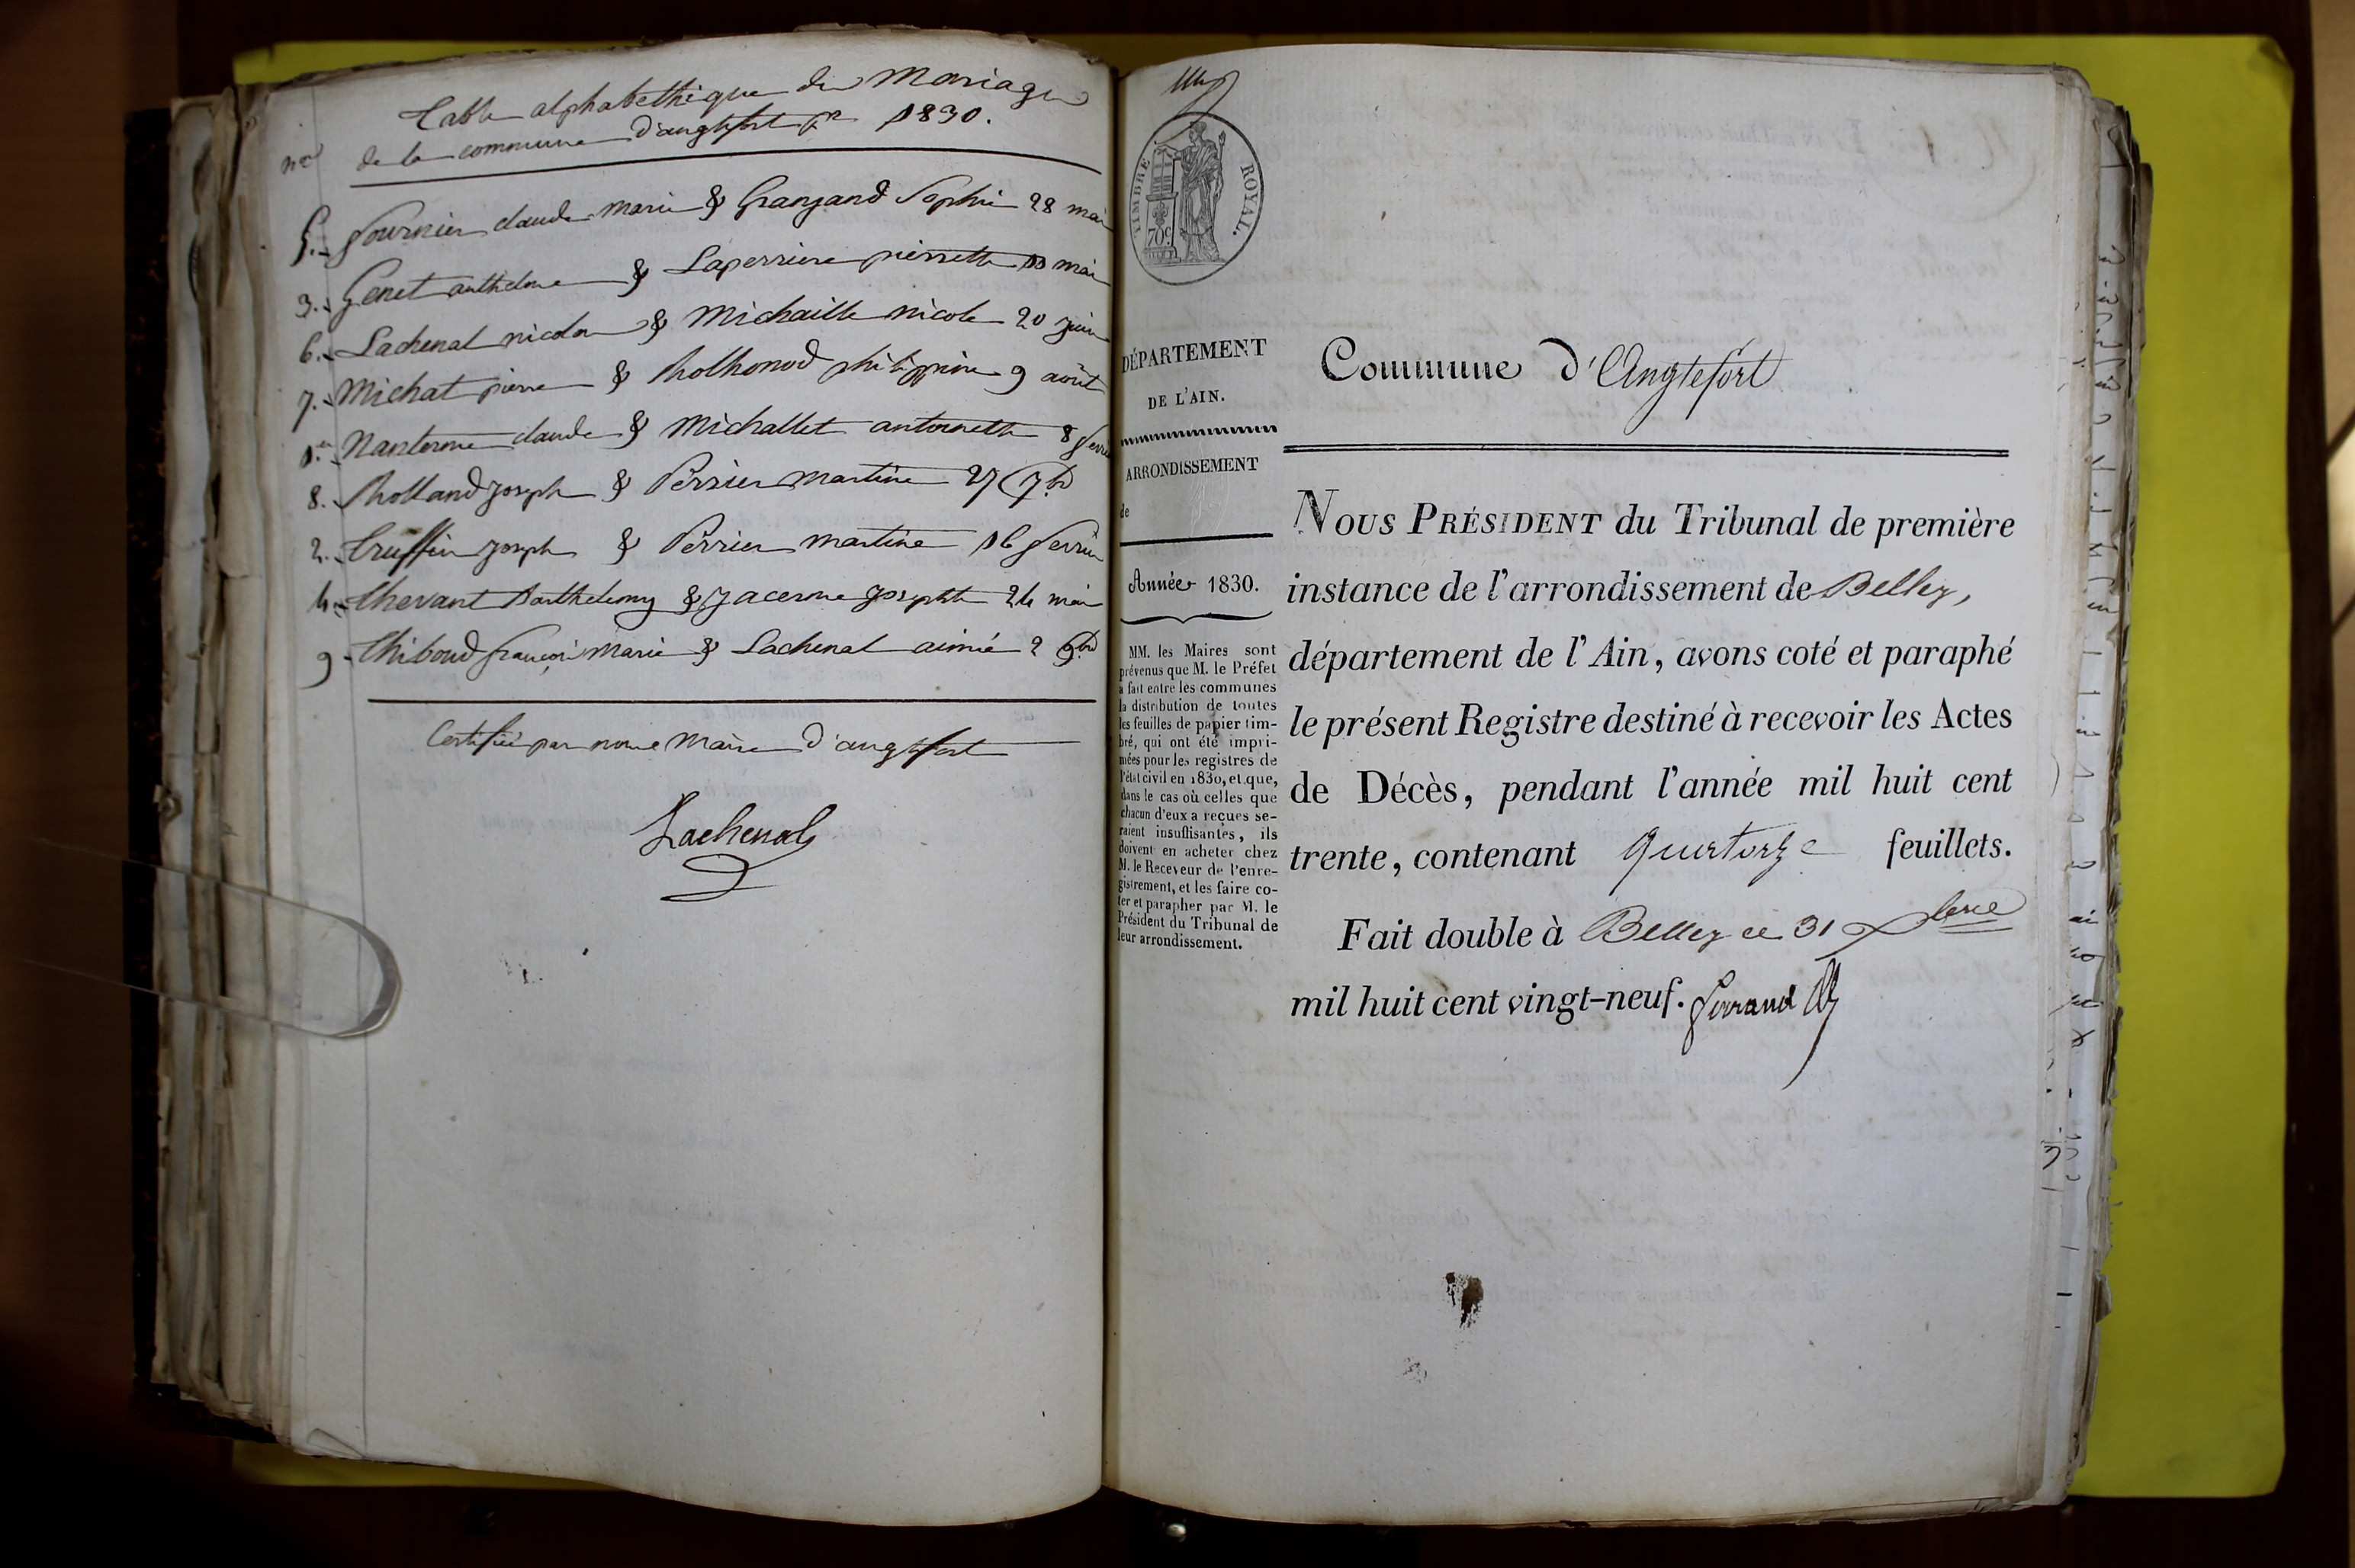 Table alphabethique des Mariages
de la commune d'anglefort pr 1830.
nos
5. fournier claude marie & Granjand Sophie 28 mai
3. Genet anthelme & Laperriere pierrette 10 mai
6. Lachenal nicolas & Michaille nicole 20 juin
7. Michat pierre & Rolhonod philippine 9 août
1er Nanterme claude & Michallet antoinette 8 fevrier
8. Rolland joseph & Perrier martine 27 7bre
2. Truffin joseph & Perrier martine 16 fevrier
4. Thevant Barthelemy & Jacerme josephte 24 mai
9. Thiboud françois Marie & Lachenal aimée 2 9bre
Certifié par nous Maire d'anglefort
Lachenal
TIMBRE ROYAL.
70c
DÉPARTEMENT
DE L'AIN.
ARRONDISSEMENT
de
Année 1830.
MM. les Maires sont
prévenus que M. le Préfet
a fait entre les communes
la distribution de toutes
les feuilles de papier tim-
bré, qui ont été impri-
mées pour les registres de
l'état civil en 1830, et que,
dans le cas où celles que
chacun d'eux a reçues se-
raient insuffisantes, ils
doivent en acheter chez
M. le Receveur de l'enre-
gistrement, et les faire co-
ter et parapher par M. le
Président du Tribunal de
leur arrondissement.
Commune d'Anglefort
NOUS PRÉSIDENT du Tribunal de première
instance de l'arrondissement de Belley,
département de l'Ain, avons coté et paraphé
le présent Registre destiné à recevoir les Actes
de Décès, pendant l'année mil huit cent
trente, contenant quatorze feuillets.
Fait double à Belley ce 31 Xbre
mil huit cent vingt-neuf.